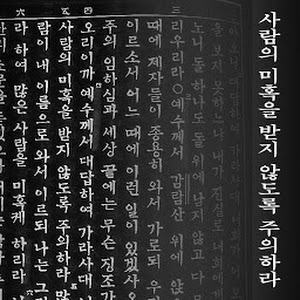 사람의 미혹을 받지 않도록 주의하라
三
四
五
六
을 보지 못하느냐 내가 진실로 너희에게
노니 돌 하나도 돌 위에 남지 않고 다
리우리라 ○예수께서 감람산 위에 앉
때에 제자들이 종용히 와서 가로되 우
이르소서 어느 때에 이런 일이 있겠사오
주의 임하심과 세상 끝에는 무슨 징조가
오리이까 예수께서 대답하여 가라사대 너
사람의 미혹을 받지 않도록 주의하라
람이 내 이름으로 와서 이르되 나는 그
라 하여 많은 사람을 미혹케 하리라